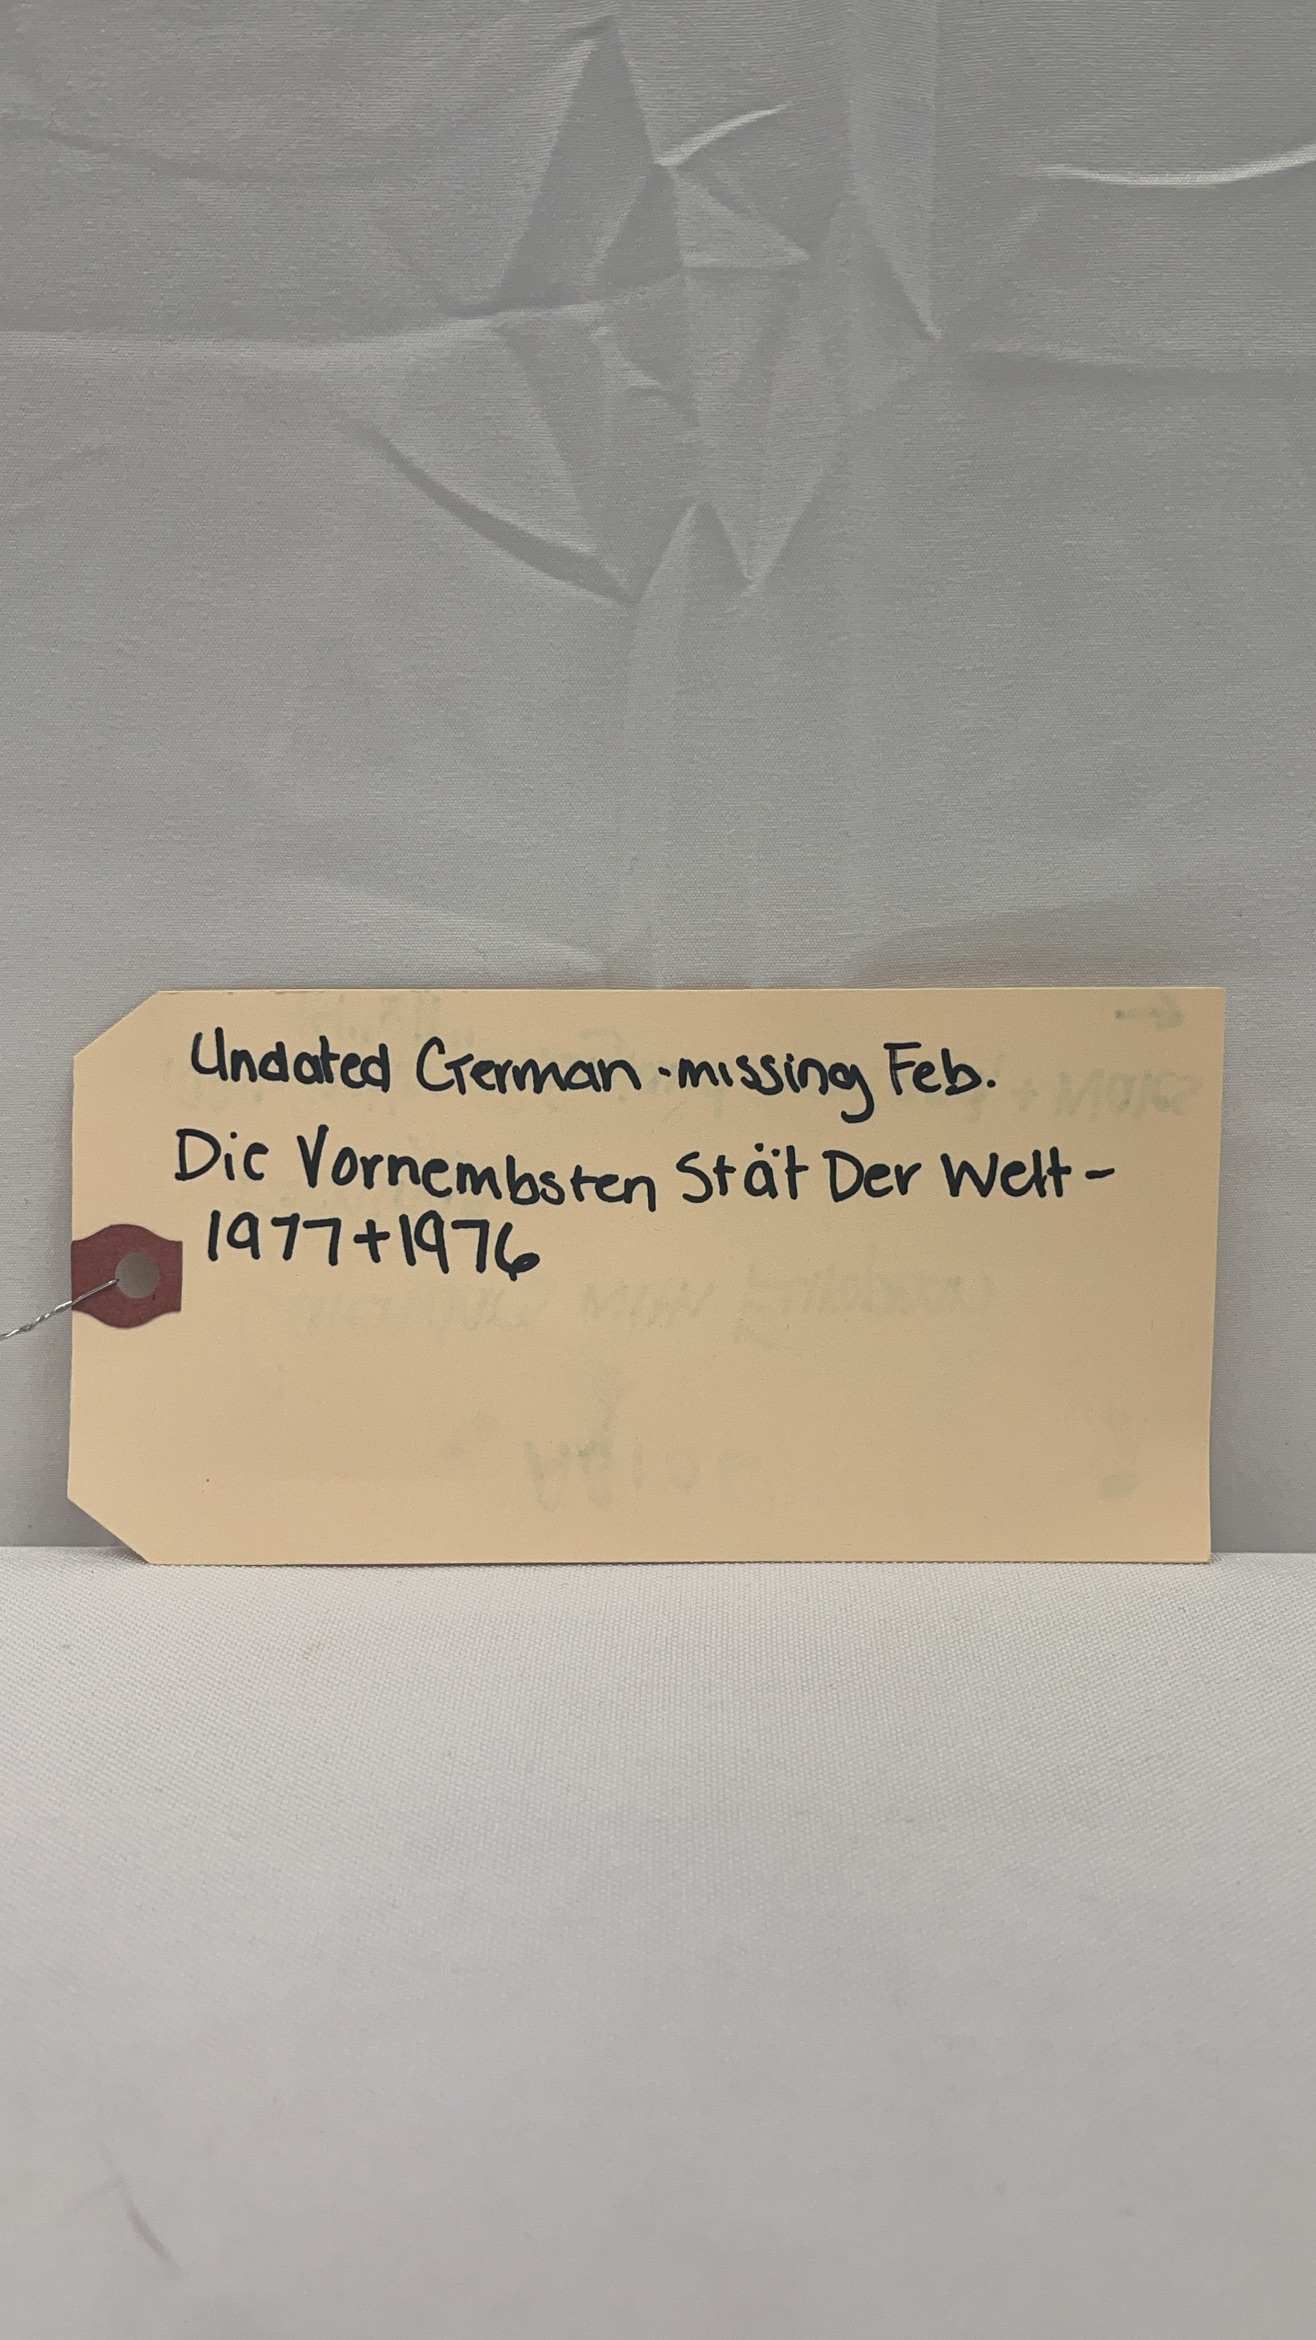 Undated German - missing Feb.
Die Vornembsten Stät Der Welt -
1977 + 1976